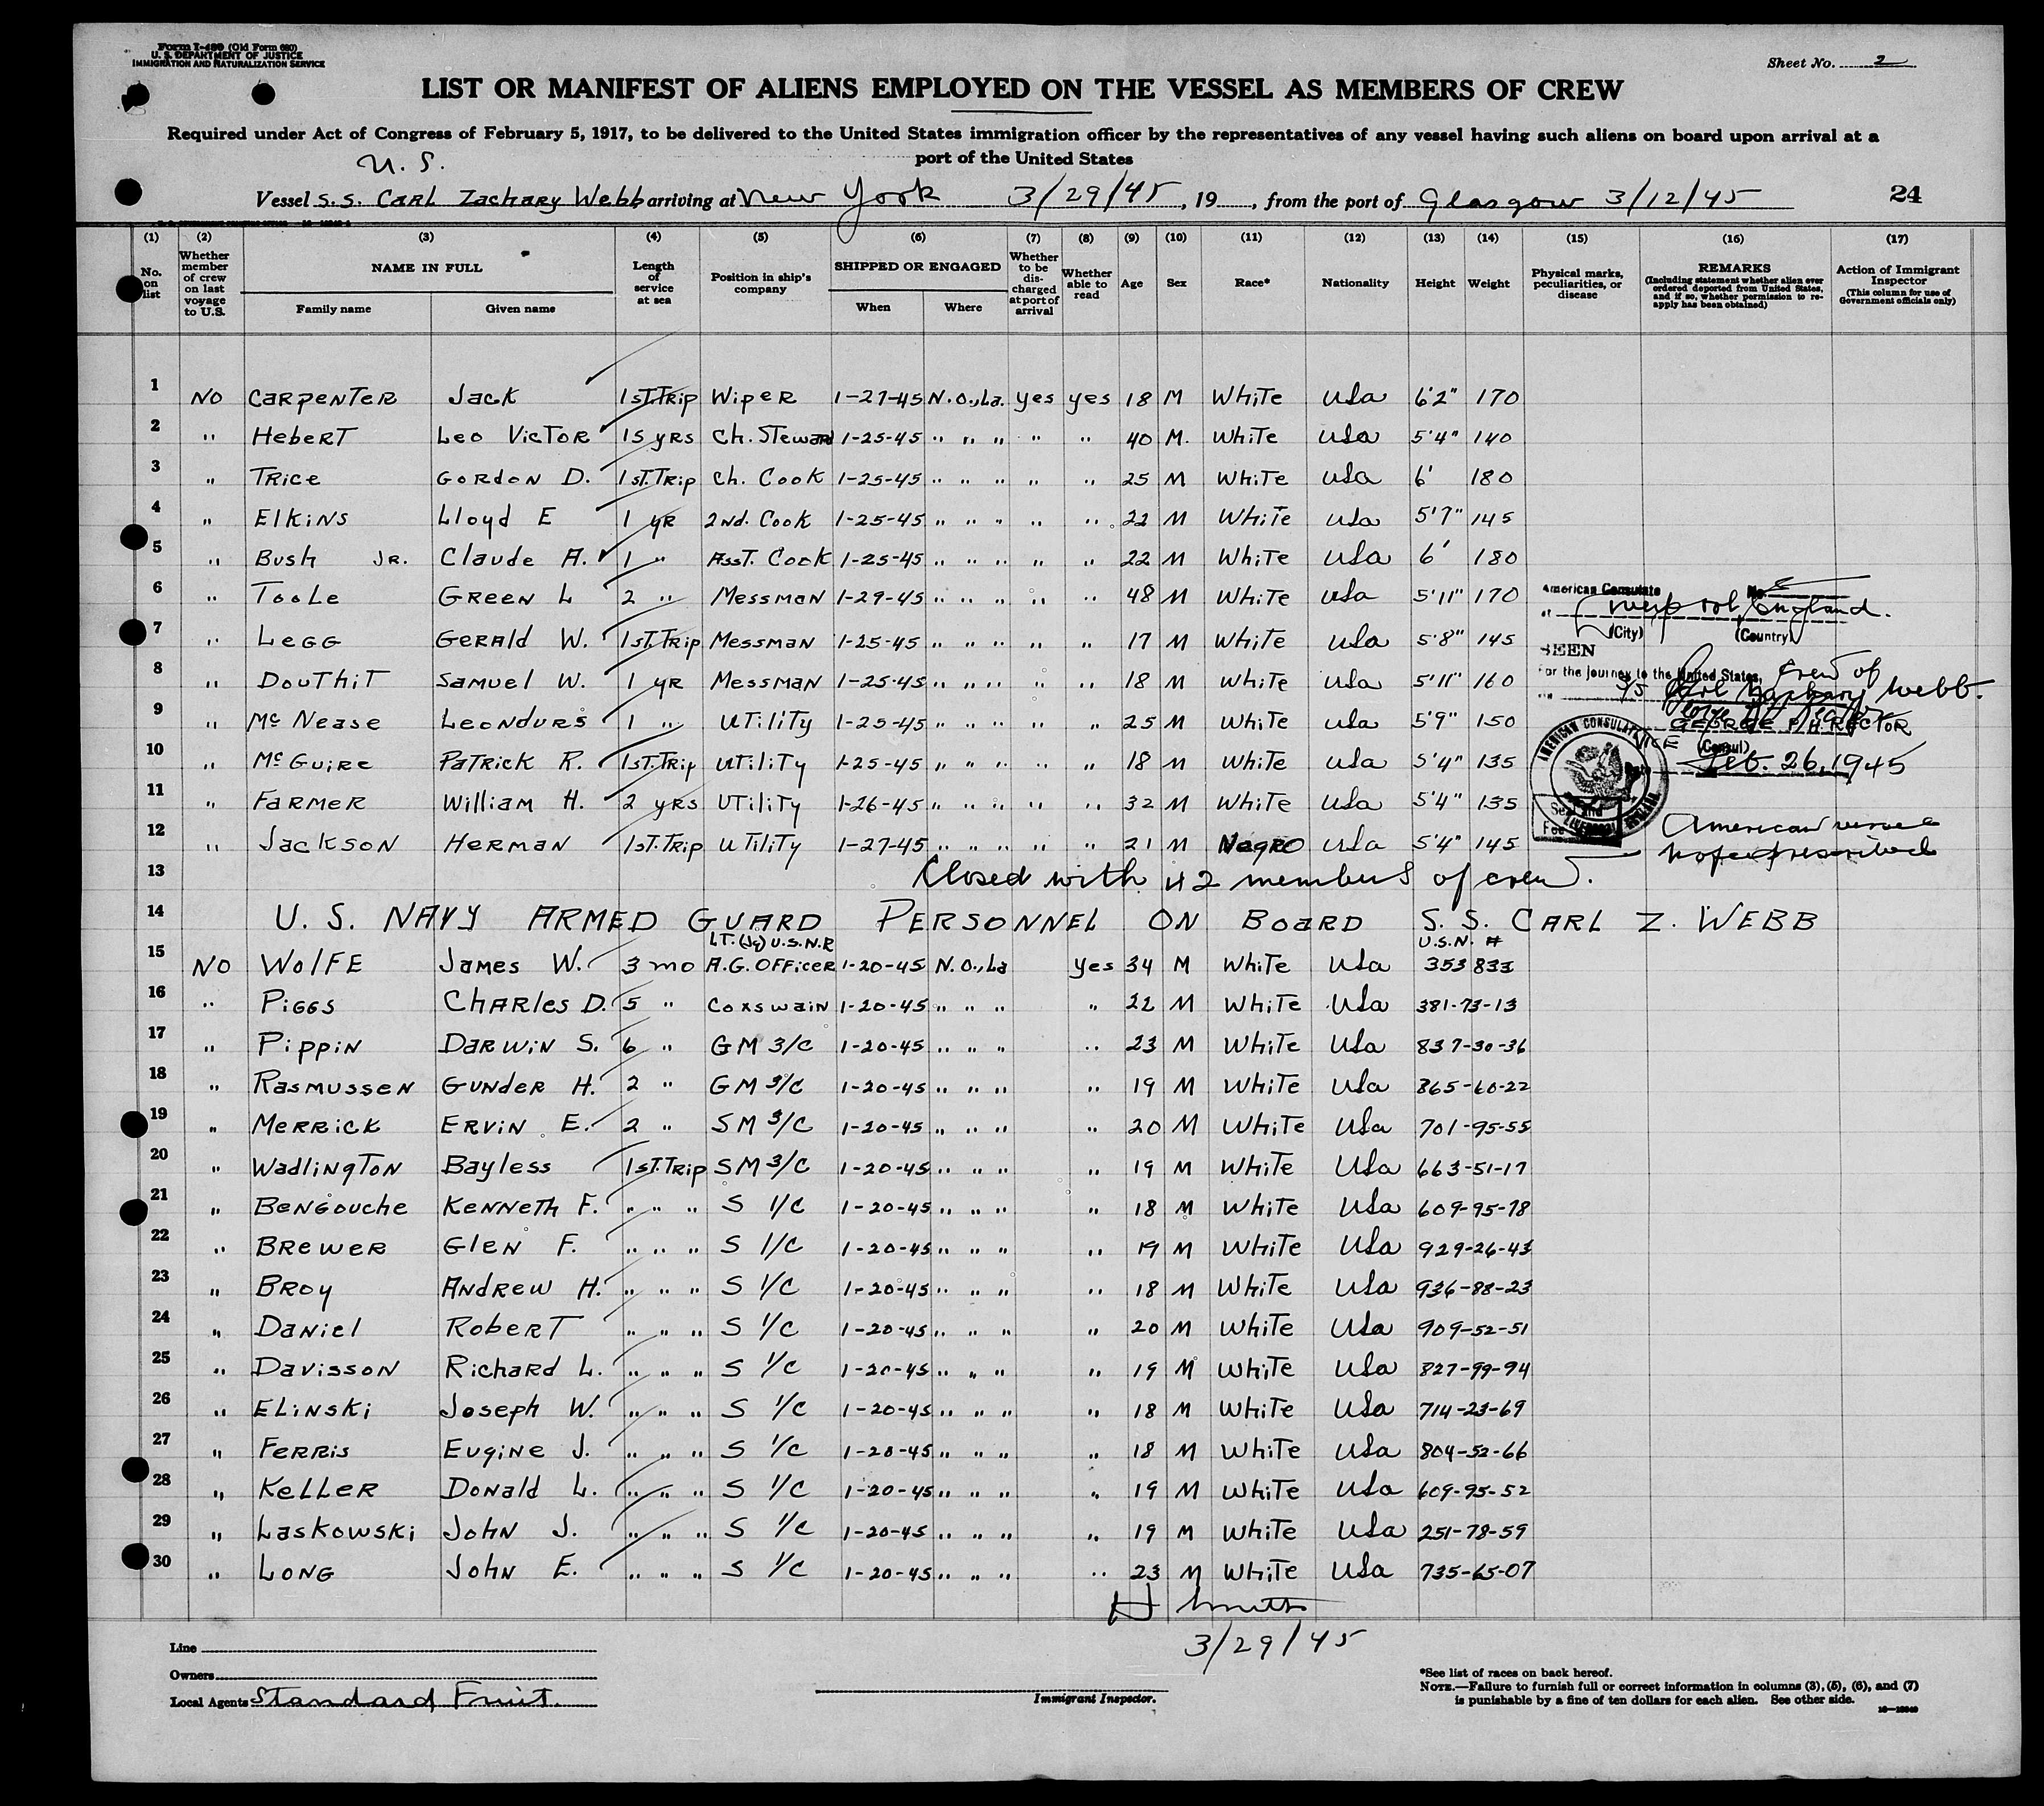 Form I-489 (Old Form 680)
U. S. DEPARTMENT OF JUSTICE
IMMIGRATION AND NATURALIZATION SERVICE
Sheet No. 2
LIST OR MANIFEST OF ALIENS EMPLOYED ON THE VESSEL AS MEMBERS OF CREW
Required under Act of Congress of February 5, 1917, to be delivered to the United States immigration officer by the representatives of any vessel having such aliens on board upon arrival at a
port of the United States
U. S.
Vessel S.S. Carl Zachary Webb arriving at New York 3/29/45, 19 , from the port of Glasgow 3/12/45 24
(1) (2) (3) (4) (5) (6) (7) (8) (9) (10) (11) (12) (13) (14) (15) (16) (17)
No. on list
Whether member of crew on last voyage to U.S.
NAME IN FULL
Family name Given name
Length of service at sea
Position in ship's company
SHIPPED OR ENGAGED
When Where
Whether to be discharged at port of arrival
Whether able to read
Age
Sex
Race*
Nationality
Height
Weight
Physical marks, peculiarities, or disease
REMARKS
(Including statement whether alien ever ordered deported from United States, and if so, whether permission to reapply has been obtained)
Action of Immigrant Inspector
(This column for use of Government officials only)
1 No Carpenter Jack 1st.Trip Wiper 1-27-45 N.O.,La. yes yes 18 M White USa 6'2" 170
2 " Hebert Leo Victor 15 yrs Ch. Steward 1-25-45 " " " " " 40 M. White USa 5'4" 140
3 " Trice Gordon D. 1st.Trip Ch. Cook 1-25-45 " " " " " 25 M White USa 6' 180
4 " Elkins Lloyd E 1 yr 2nd. Cook 1-25-45 " " " " " 22 M White USa 5'7" 145
5 " Bush Jr. Claude A. 1 " Asst. Cook 1-25-45 " " " " " 22 M White USa 6' 180
6 " Toole Green L 2 " Messman 1-29-45 " " " " " 48 M White USa 5'11" 170
7 " Legg Gerald W. 1st.Trip Messman 1-25-45 " " " " " 17 M White USa 5'8" 145
8 " Douthit Samuel W. 1 yr Messman 1-25-45 " " " " " 18 M White USa 5'11" 160
9 " McNease Leondurs 1 " Utility 1-25-45 " " " " " 25 M White USa 5'9" 150
10 " McGuire Patrick R. 1st.Trip Utility 1-25-45 " " " " " 18 M White USa 5'4" 135
11 " Farmer William H. 2 yrs Utility 1-26-45 " " " " " 32 M White USa 5'4" 135
12 " Jackson Herman 1st.Trip Utility 1-27-45 " " " " " 21 M Negro USa 5'4" 145
American Consulate No.
at Liverpool, England.
(City) (Country)
SEEN
For the journey to the United States, Crew of
SS Carl Zachary Webb.
GEORGE P. H. RECTOR
(Consul)
Feb. 26, 1945
AMERICAN CONSULATE
American vessel
no fee prescribed
13 Closed with 42 members of crew.
14 U. S. NAVY ARMED GUARD PERSONNEL ON BOARD S. S. CARL Z. WEBB
LT. (Jg) U.S.N.R U.S.N. #
15 No Wolfe James W. 3 mo A.G. Officer 1-20-45 N.O.,La yes 34 M White USa 353833
16 " Piggs Charles D. 5 " Coxswain 1-20-45 " " " " 22 M White USa 381-73-13
17 " Pippin Darwin S. 6 " GM 3/C 1-20-45 " " " " 23 M White USa 837-30-36
18 " Rasmussen Gunder H. 2 " GM 3/C 1-20-45 " " " " 19 M White USa 865-60-22
19 " Merrick Ervin E. 2 " SM 3/C 1-20-45 " " " " 20 M White USa 701-95-55
20 " Wadlington Bayless 1st.Trip SM 3/C 1-20-45 " " " " 19 M White USa 663-51-17
21 " Bengouche Kenneth F. " " " S 1/C 1-20-45 " " " " 18 M White USa 609-95-78
22 " Brewer Glen F. " " " S 1/C 1-20-45 " " " " 19 M White USa 929-26-43
23 " Broy Andrew H. " " " S 1/C 1-20-45 " " " " 18 M White USa 936-88-23
24 " Daniel Robert " " " S 1/C 1-20-45 " " " " 20 M White USa 909-52-51
25 " Davisson Richard L. " " " S 1/C 1-20-45 " " " " 19 M White USa 827-99-94
26 " Elinski Joseph W. " " " S 1/C 1-20-45 " " " " 18 M White USa 714-23-69
27 " Ferris Eugine J. " " " S 1/C 1-20-45 " " " " 18 M White USa 804-52-66
28 " Keller Donald L. " " " S 1/C 1-20-45 " " " " 19 M White USa 609-95-52
29 " Laskowski John J. " " " S 1/C 1-20-45 " " " " 19 M White USa 251-78-59
30 " Long John E. " " " S 1/C 1-20-45 " " " " 23 M White USa 735-65-07
H Smith
3/29/45
Line
Owners
Local Agents Standard Fruit.
Immigrant Inspector.
*See list of races on back hereof.
NOTE.—Failure to furnish full or correct information in columns (3), (5), (6), and (7)
is punishable by a fine of ten dollars for each alien. See other side.